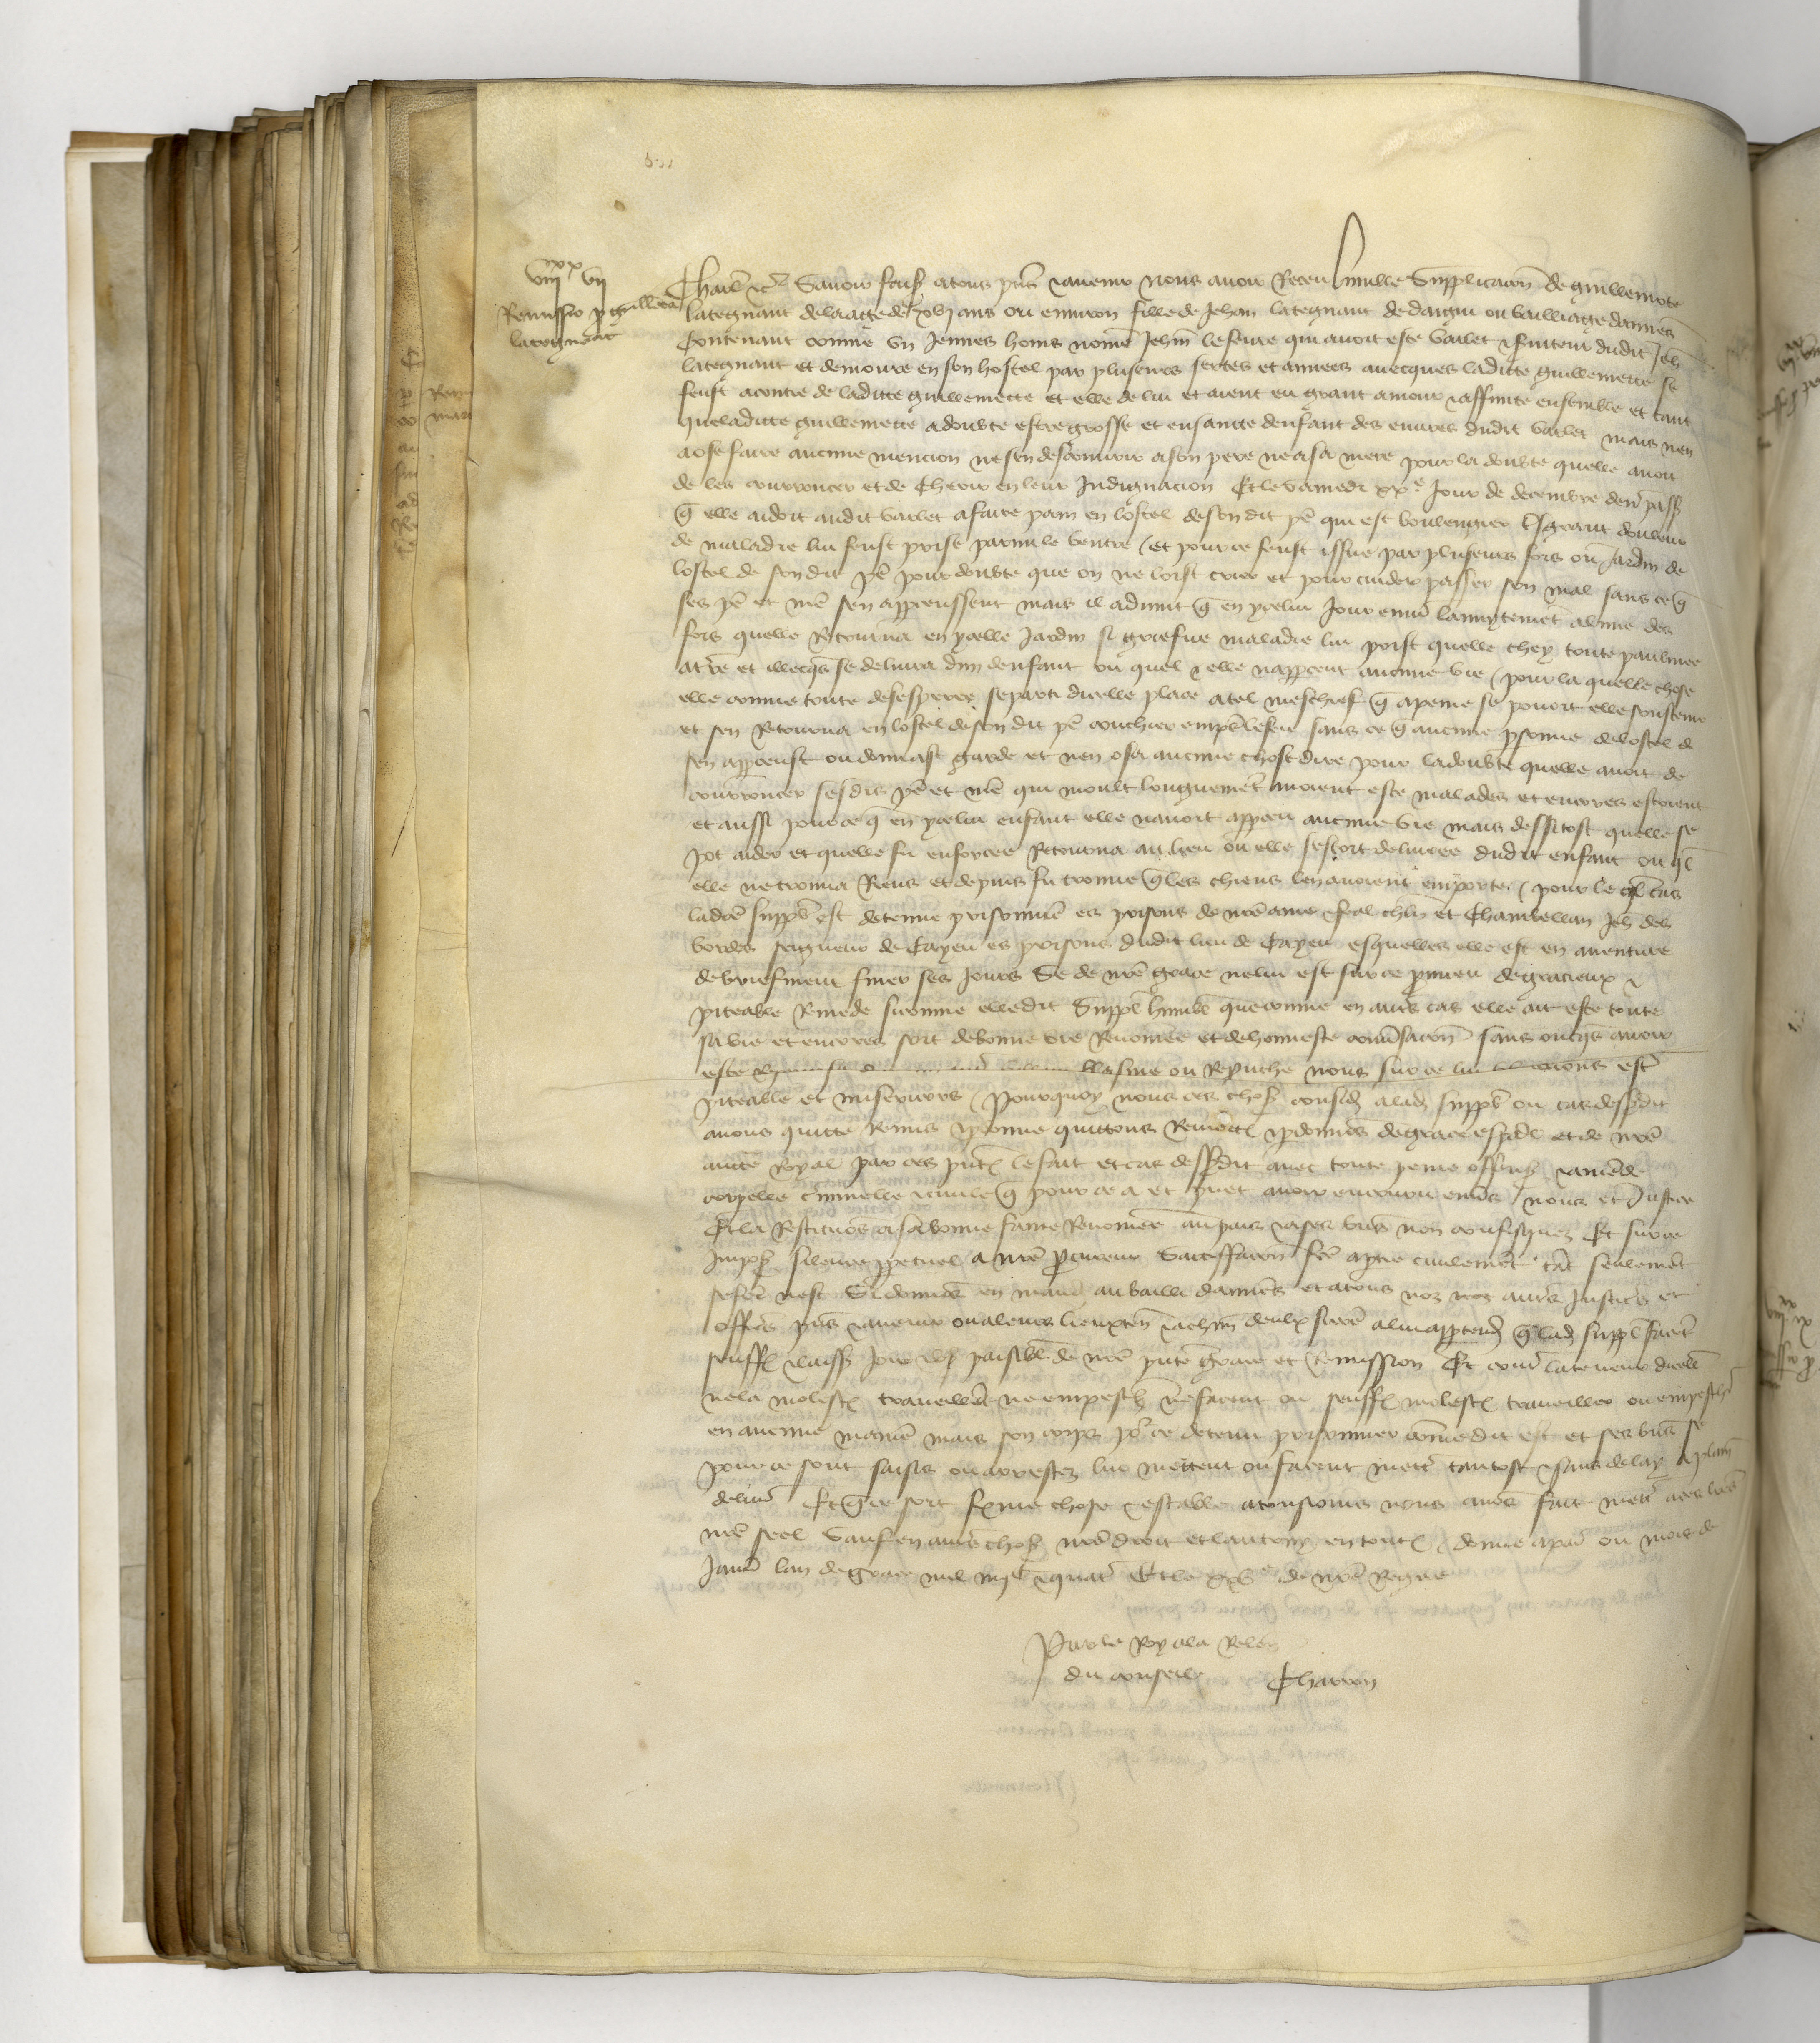 viiixx vii
Remissio pro guillemete
lategnant
Charl etc Savoir faisons a tous presens et avenir nous avoir Receu humble Supplicacion de guillemete
lategnant de laage de xvj ans ou environ fille de Jehan lategnant de dargni ou bailliage damiens
Contenant comme un Jennes homs nomme Jehan lefevre qui avoit este varlet et serviteur dudit Jeh
lategnant et demoure en son hostel par pluseurs sertes et annees avecques ladicte guillemete se
feust acointe de ladicte guillemecte et elle de lui et aient eu grant amour et affinite ensemble et tant
que ladicte guillemete a doubte estre grosse et ensaincte denfant des euvres dudit varlet mais nen
a ose faire aucune mencion ne sen descouvrir a son pere ne a sa mere pour la doubte quelle avoit
de les courroucer et de Cheoir en leur Indignacion Et le samedi xxe Jour de decembre derr passe
que elle aidoit audit varlet a faire pain en lostel de son dit pere qui est boulengier Et grant douleur
de maladie lui feust prise parmi le ventre et pour ce feust issue par pluseurs fois ou Jardin de
lostel de son dit pere pour doubte que on ne loist crier et pour cuider passer son mal sans ce que
ses pere et mere sen apperceussent mais il advint que en ycelui Jour environ lanuytement a lune des
fois quelle Retourna en ycelle Jardin si griefve maladie lui prist quelle chey toute paulmee
a terre et illecques se delivra dun denfant ou quel elle napperceut aucune vie pour la quelle chose
elle comme toute desesperee se parti dicelle place a tel meschief que a peine se povoit elle soustenir
et sen Retourna en lostel de son dit pere couchier empres le feu sans ce que aucune personne de lostel de
sen apperceust ou donnast garde et nen osa aucune chose dire pour la doubte quelle avoit de
courroucer sesdis pere et mere qui moult longuement avoient este malades et encores estoient
et aussi pour ce que en ycelui enfant elle navoit apperceu aucune vie mais dessitost quelle se
pot aider et quelle fu enforcee Retourna au lieu ou elle sestoit delivree dudit enfant ou quel
elle ne trouva Riens et depuis fu trouve que les chiens len avoient emporte pour le quel cas
ladicte suppliant est detenue prisonniere es prisons de nostre ame et feal chevalier et Chambellan Jehan des
bordes seigneur de Cayeu es prisons dudit lieu de Cayeu esquelles elle est en aventure
de briefment finer ses Jours Se de nostre grace ne lui est sur ce pourveu de gracieux et
piteable Remede si comme elle dit Suppliant humblement que comme en autres cas elle ait este toute
sa vie et encores soit de bonne vie Renomee et de honneste conversacion sans oncques avoir
este blasme ou Reprouche nous sur ce lui vueillons estre
piteable et misericors Pourquoy nous ces choses considerees a ladicte suppliant ou cas dessusdit
avons quitte Remis et pardonne quittons Remettons et pardonnons de grace especial et de nostre
auctorite Royal par ces presentes le fait et cas dessusdit avec toute peine offense et amende
corpelle criminelle et civile que pour ce a et puet avoir encouru envers nous et Justice
Et la Restituons a sa bonne fame Renomee au pais et a ses biens non confisquez Et sur ce
Imposons silence perpetuel a nostre procureur Satisffacion fete a partie civilement tant seulement
se fete nest Si donnons en mandement au bailli damiens et a tous noz noz autres Justiciers et
officiers presens et avenir ou a leurs lieuxtenans et a chascun deulx si comme a lui appartendra que ladicte suppliant facent
seuffrent et laissent Joir et user paisiblement de nostre presente grace et Remission Et contre la teneur dicelle
ne la molestent travaillent ne empeschent ne facent ou seuffrent molester traveillier ou empeschier
en aucune maniere mais son corps pour ce detenu prisonnier comme dit est et ses biens se
pour ce sont saisis ou arrestez lui mettent ou facent mettre tantost et sans delay a plain
delivre Et que ce soit ferme chose et estable a tousjours nous avons fait mettre a ces lettres
nostre seel Sauf en autres choses nostre droit et lautruy en toutes donne a paris ou mois de
Janvier lan de grace mil iiijc et quatre Et le xxve de nostre Regne
Par le Roy a la Relacion
du conseil Charron